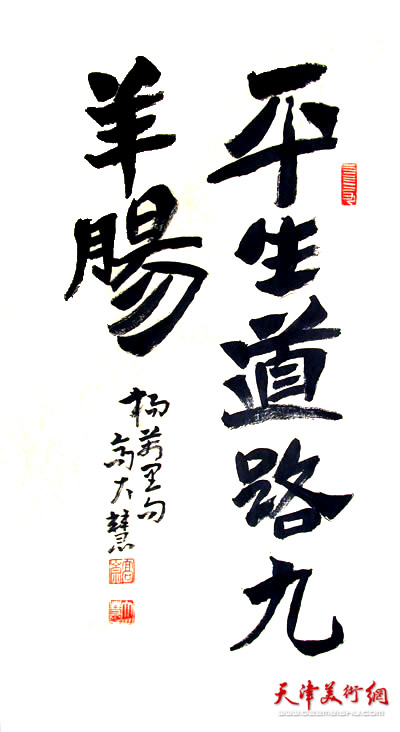 平生道路九
羊腸
楊萬里句
高大慧
天津美術網